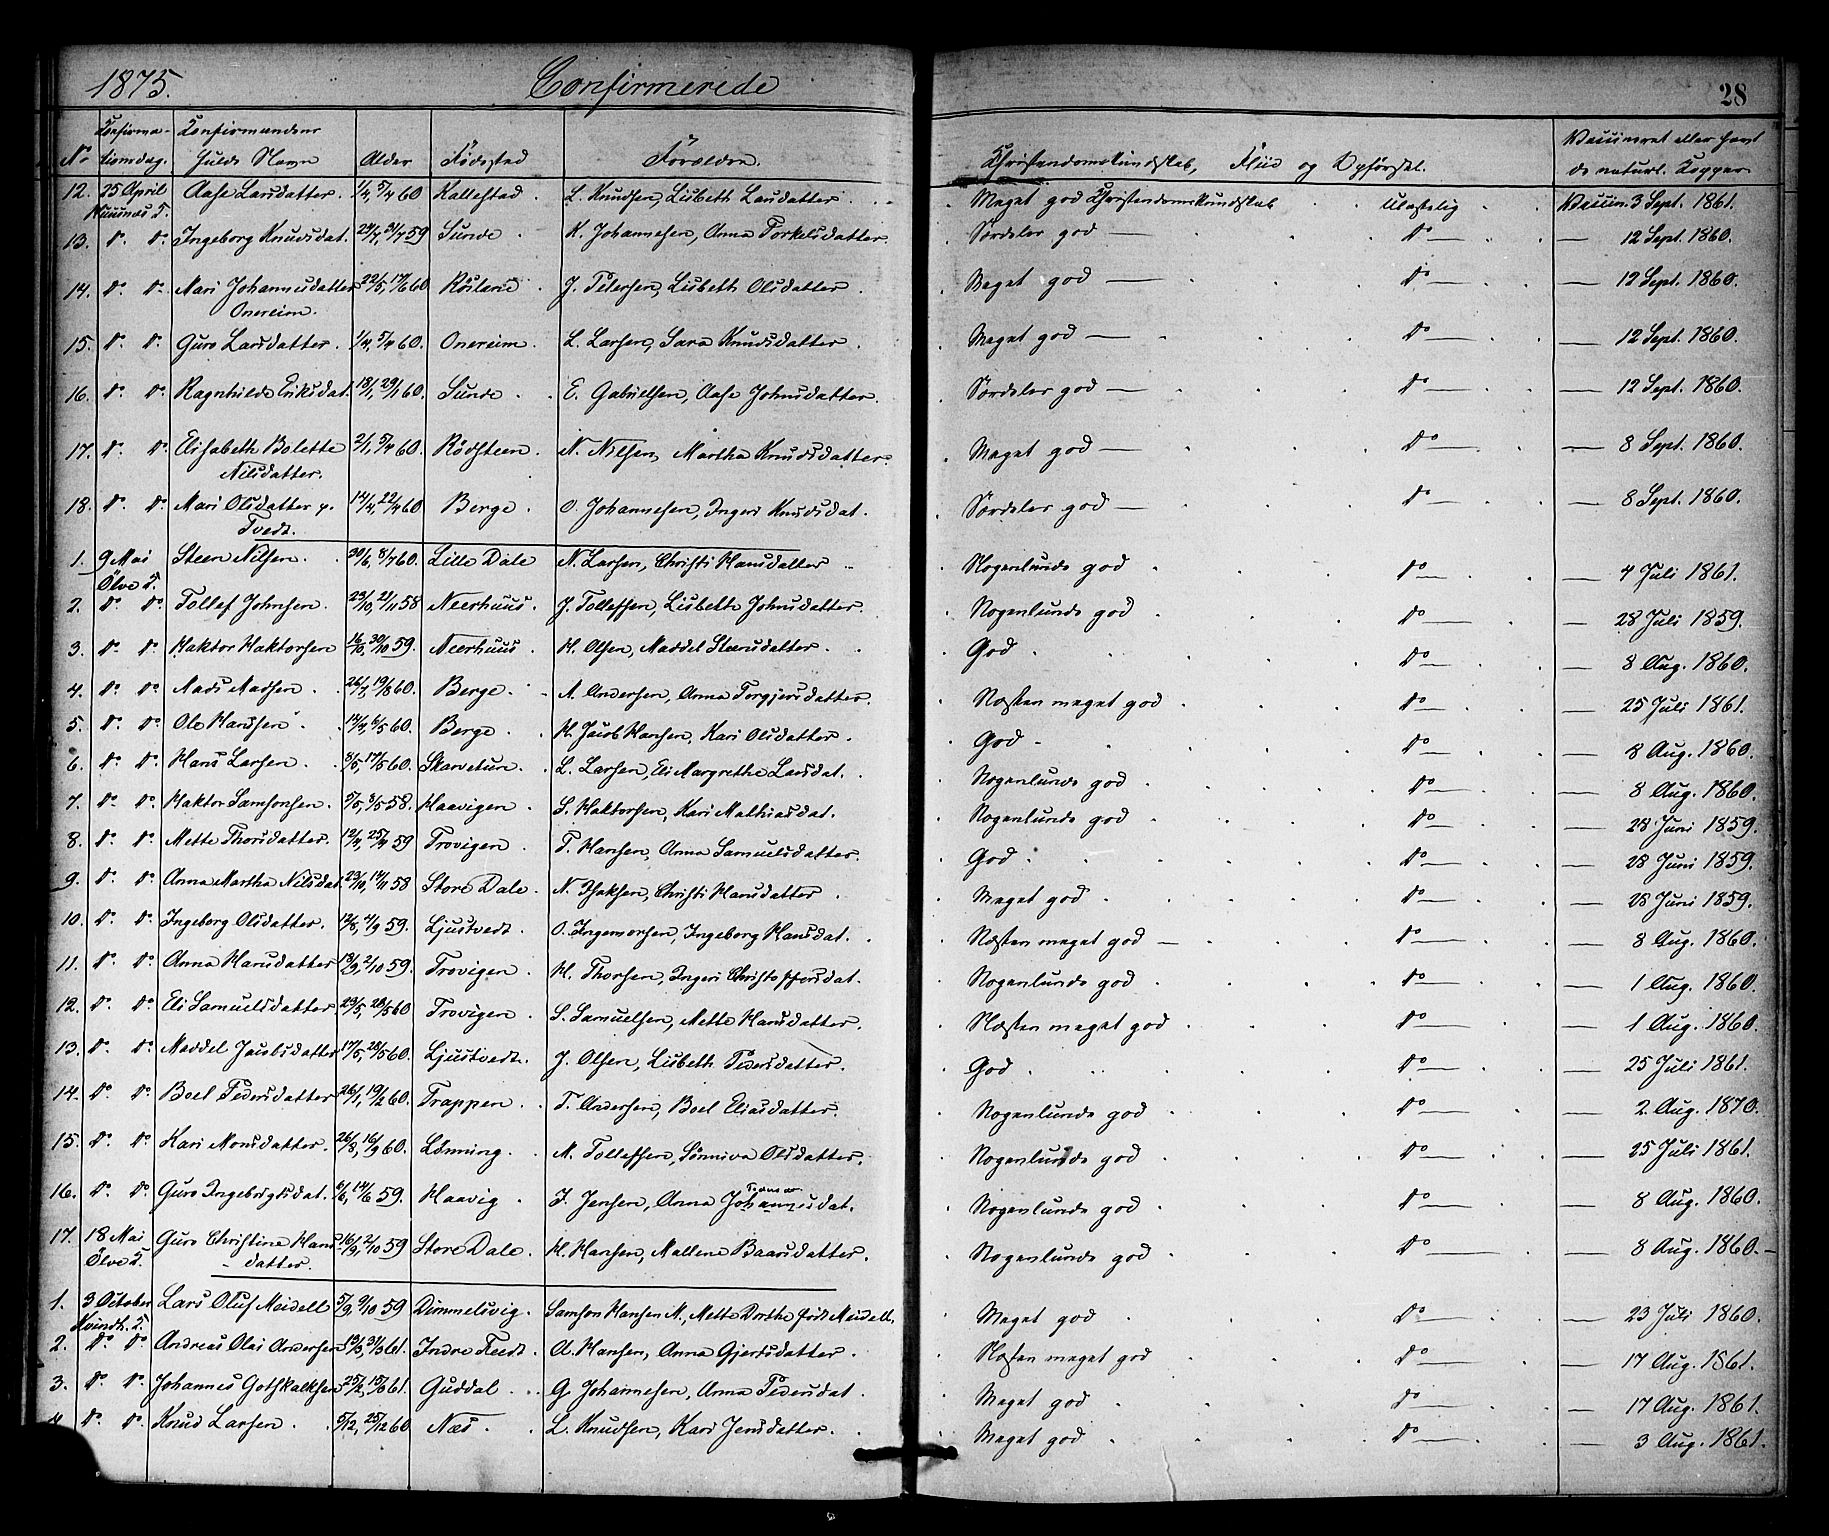 1875. Confirmerede 28
No Confirma- Konfirmandens
tionsdag. fulde Navn Alder Fødested Forældre. Christendomskundskab, Flid og Opførsel. Vaccineret eller havt
de naturl. Kopper
12. 25 April Aase Larsdatter. 1/4, 5/4 60 Kallestad L. Knudsen, Lisbeth Larsdatter. Meget god Christendomskundskab ulastelig Vaccin. 3 Sept. 1861.
13. do. do. Ingeborg Knudsdat. 59 Sunde. K. Johannesen, Anna Torkelsdatter. Særdeles god — do — 12 Sept. 1860.
14. do. do. Mari Johannesdatter 22/5, 17/6 60 Røiland J. Petersen, Lisbeth Olsdatter. Meget god — do — 12 Sept. 1860.
Onereim.
15. do. do. Guro Larsdatter. 1/4, 5/4 60. Onereim. L. Larsen, Sara Knudsdatter. Meget god — do — 12 Sept. 1860.
16. do. do. Ragnhilde Eriksdat. 18/1, 29/1 60. Sunde. E. Gabrielsen, Aase Johnsdatter. Særdeles god — do — 12 Sept. 1860.
17. do. do. Elisabeth Bolette 2/1, 5/4 60. Rödsteen. N. Nilsen, Martha Knudsdatter. Meget god — do — 8 Sept. 1860.
Nilsdatter.
18. do. do. Mari Olsdatter p. 14/4, 22/4 60 Berge. O. Johannesen, Ingeri Knudsdat. Særdeles god — do — 8 Sept. 1860.
Tvedt.
1. 9 Mai Steen Nilsen. 30/6, 8/7 60. Lille Dale N. Larsen, Christi Hansdatter Nogenlunde god. do — 4 Juli 1861.
Ölve K.
2. do. do. Tollef Johnsen. 23/10, 21/11 58 Neerhuus. J. Tollefsen, Lisbeth Johnsdatter. Nogenlunde god. do — 28 Juli 1859.
3. do. do. Haktor Haktorsen 16/10, 30/10 59. Neerhuus. H. Olsen, Maddel Steensdatter. God. do — 8 Aug. 1860.
4. do. do. Mads Madsen. 26/7, 19/8 60. Berge. M. Andersen, Anna Torgjersdatter. Næsten meget god. do — 25 Juli 1861.
5. do. do. Ole Hansen. 14/4, 6/5 60. Berge. H. Jacob Hansen, Kari Olsdatter. God. do — 8 Aug. 1860.
6. do. do. Hans Larsen. 8/5, 17/5 60. Skarvetun. L. Larsen, Eli Margrethe Larsdat. Nogenlunde god. do — 8 Aug. 1860.
7. do. do. Haktor Samsonsen. 58. Haavigen. S. Haktorsen, Kari Mathiasdat. Nogenlunde god. do — 28 Juni 1859.
8. do. do. Mette Thorsdatter. 12/4, 25/4 59 Trovigen. T. Hansen, Anna Samuelsdatter. God. do — 28 Juni 1859.
9. do. do. Anna Martha Nilsdat. 23/10, 14/11 58 Store Dale. N. Isaksen, Christi Hansdatter. Meget god. do — 28 Juni 1859.
10. do. do. Ingeborg Olsdatter. 59. Ljustvedt. O. Ingemorsen, Ingeborg Hansdat. Næsten meget god — do — 8 Aug. 1860.
11. do. do. Anna Hansdatter 59. Trovigen. H. Thorsen, Ingeri Christoffersdat. Nogenlunde god. do — 1 Aug. 1860.
12. do. do. Eli Samuelsdatter 23/5, 28/5 60 Trovigen. S. Samuelsen, Mette Hansdatter. Næsten meget god. do — 1 Aug. 1860.
13. do. do. Maddel Jacobsdatter 17/5, 28/5 60. Ljustvedt. J. Olsen, Lisbeth Pedersdatter. God. do — 25 Juli 1861.
14. do. do. Boel Pedersdatter 26/1, 19/2 60. Trappen. P. Andersen, Boel Eliasdatter. Nogenlunde god. do — 2 Aug. 1870.
15. do. do. Kari Monsdatter. 26/8, 16/9 60. Lønning. M. Tollefsen, Sønniva Olsdatter. Nogenlunde god. do — 25 Juli 1861.
16. do. do. Guro Ingebrigtsdat. 59. Haavig. I. Jensen, Anna Johannesdat. Nogenlunde god. do — 8 Aug. 1860.
17. 18 Mai Guro Christine Hans- 16/9, 2/10 59 Store Dale. H. Hansen, Mallene Baarsdatter. Nogenlunde god. do — 8 Aug. 1860.
Ölve K. datter.
1. 3 October Lars Oluf Meidell 5/9, 9/10 59 Dimmelsvig. Samson Hansen M., Mette Dorthe født Meidell. Meget god do — 23 Juli 1860.
Kvindh. K.
2. do. do. Andreas Olai Andersen 13/3, 31/3 61. Indre Feedt. A. Hansen, Anna Gjertsdatter. Næsten meget god. do — 17 Aug. 1861.
3. do. do. Johannes Gotskalksen 61. Guddal. G. Johannesen, Anna Pedersdat. Meget god. do — 17 Aug. 1861.
do. do. Knud Larsen. 5/12, 25/12 60 Næs. L. Knudsen, Kari Jensdatter. Meget god. do — 3 Aug. 1861.